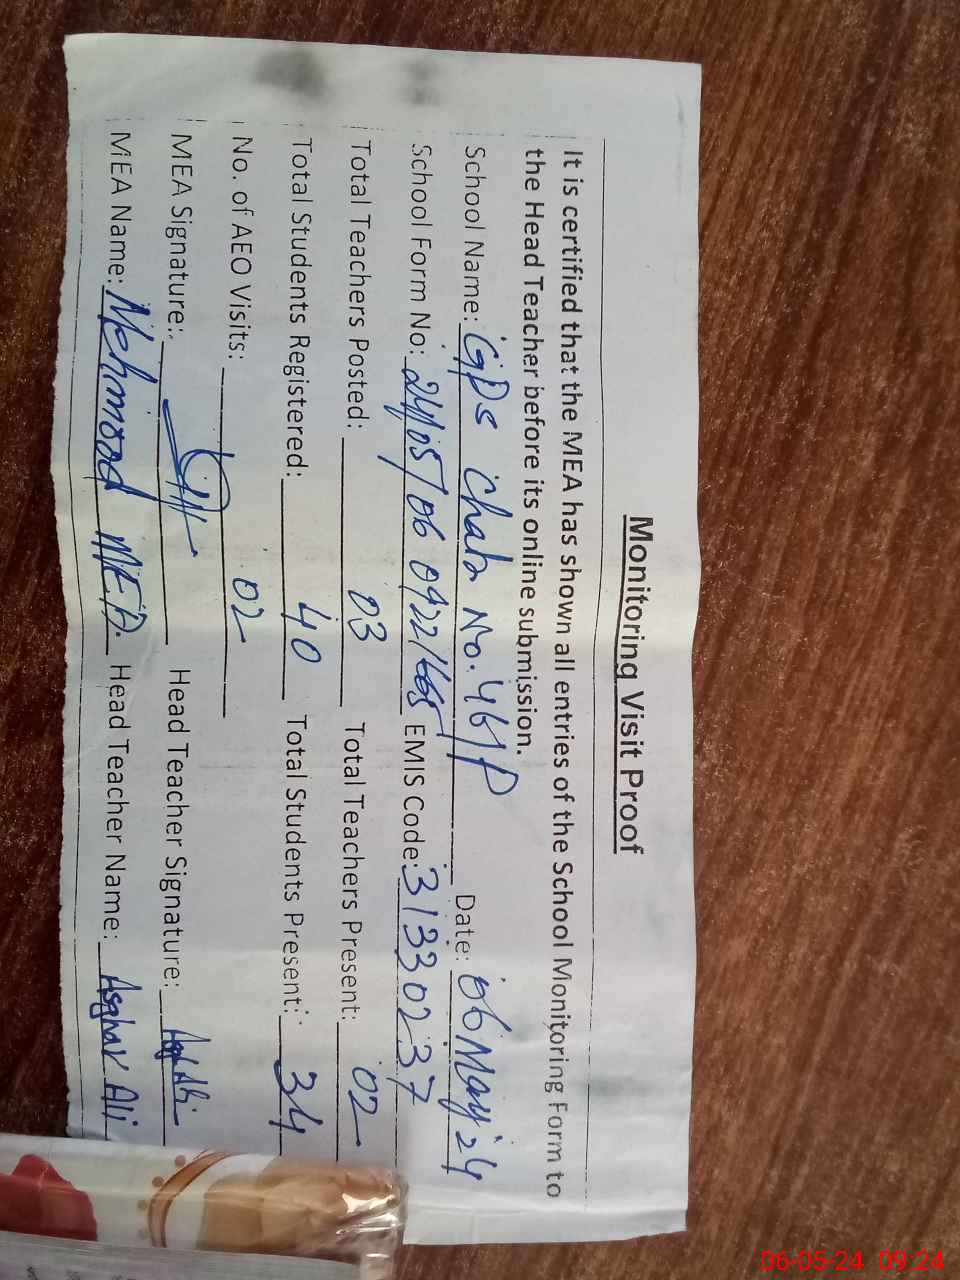 Monitoring Visit Proof
It is certified that the MEA has shown all entries of the School Monitoring Form to
the Head Teacher before its online submission.
School Name: GPS Chak No. 46/P Date: 06 May'24
School Form No: 24/05/06 0922 EMIS Code: 31330237
Total Teachers Posted: 03 Total Teachers Present: 02
Total Students Registered: 40 Total Students Present: 34
No. of AEO Visits: 02
MEA Signature: Head Teacher Signature:
MEA Name: Mehmood MEA. Head Teacher Name: Asghar Ali
06-05-24 09:24